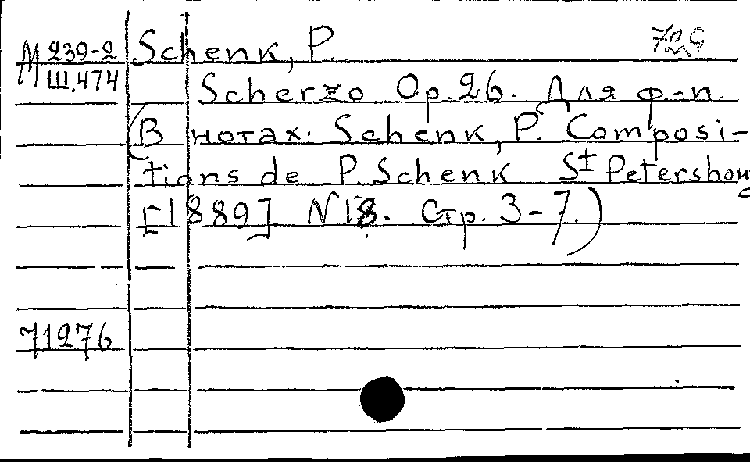 М 239-2 Schenk, P.
Ш.474
Scherzo Op. 26. Для ф.-п.
(В нотах: Schenk, P. Composi-
tions de P. Schenk St Petersbourg
[1889] N 18. Стр. 3-7.)
71276